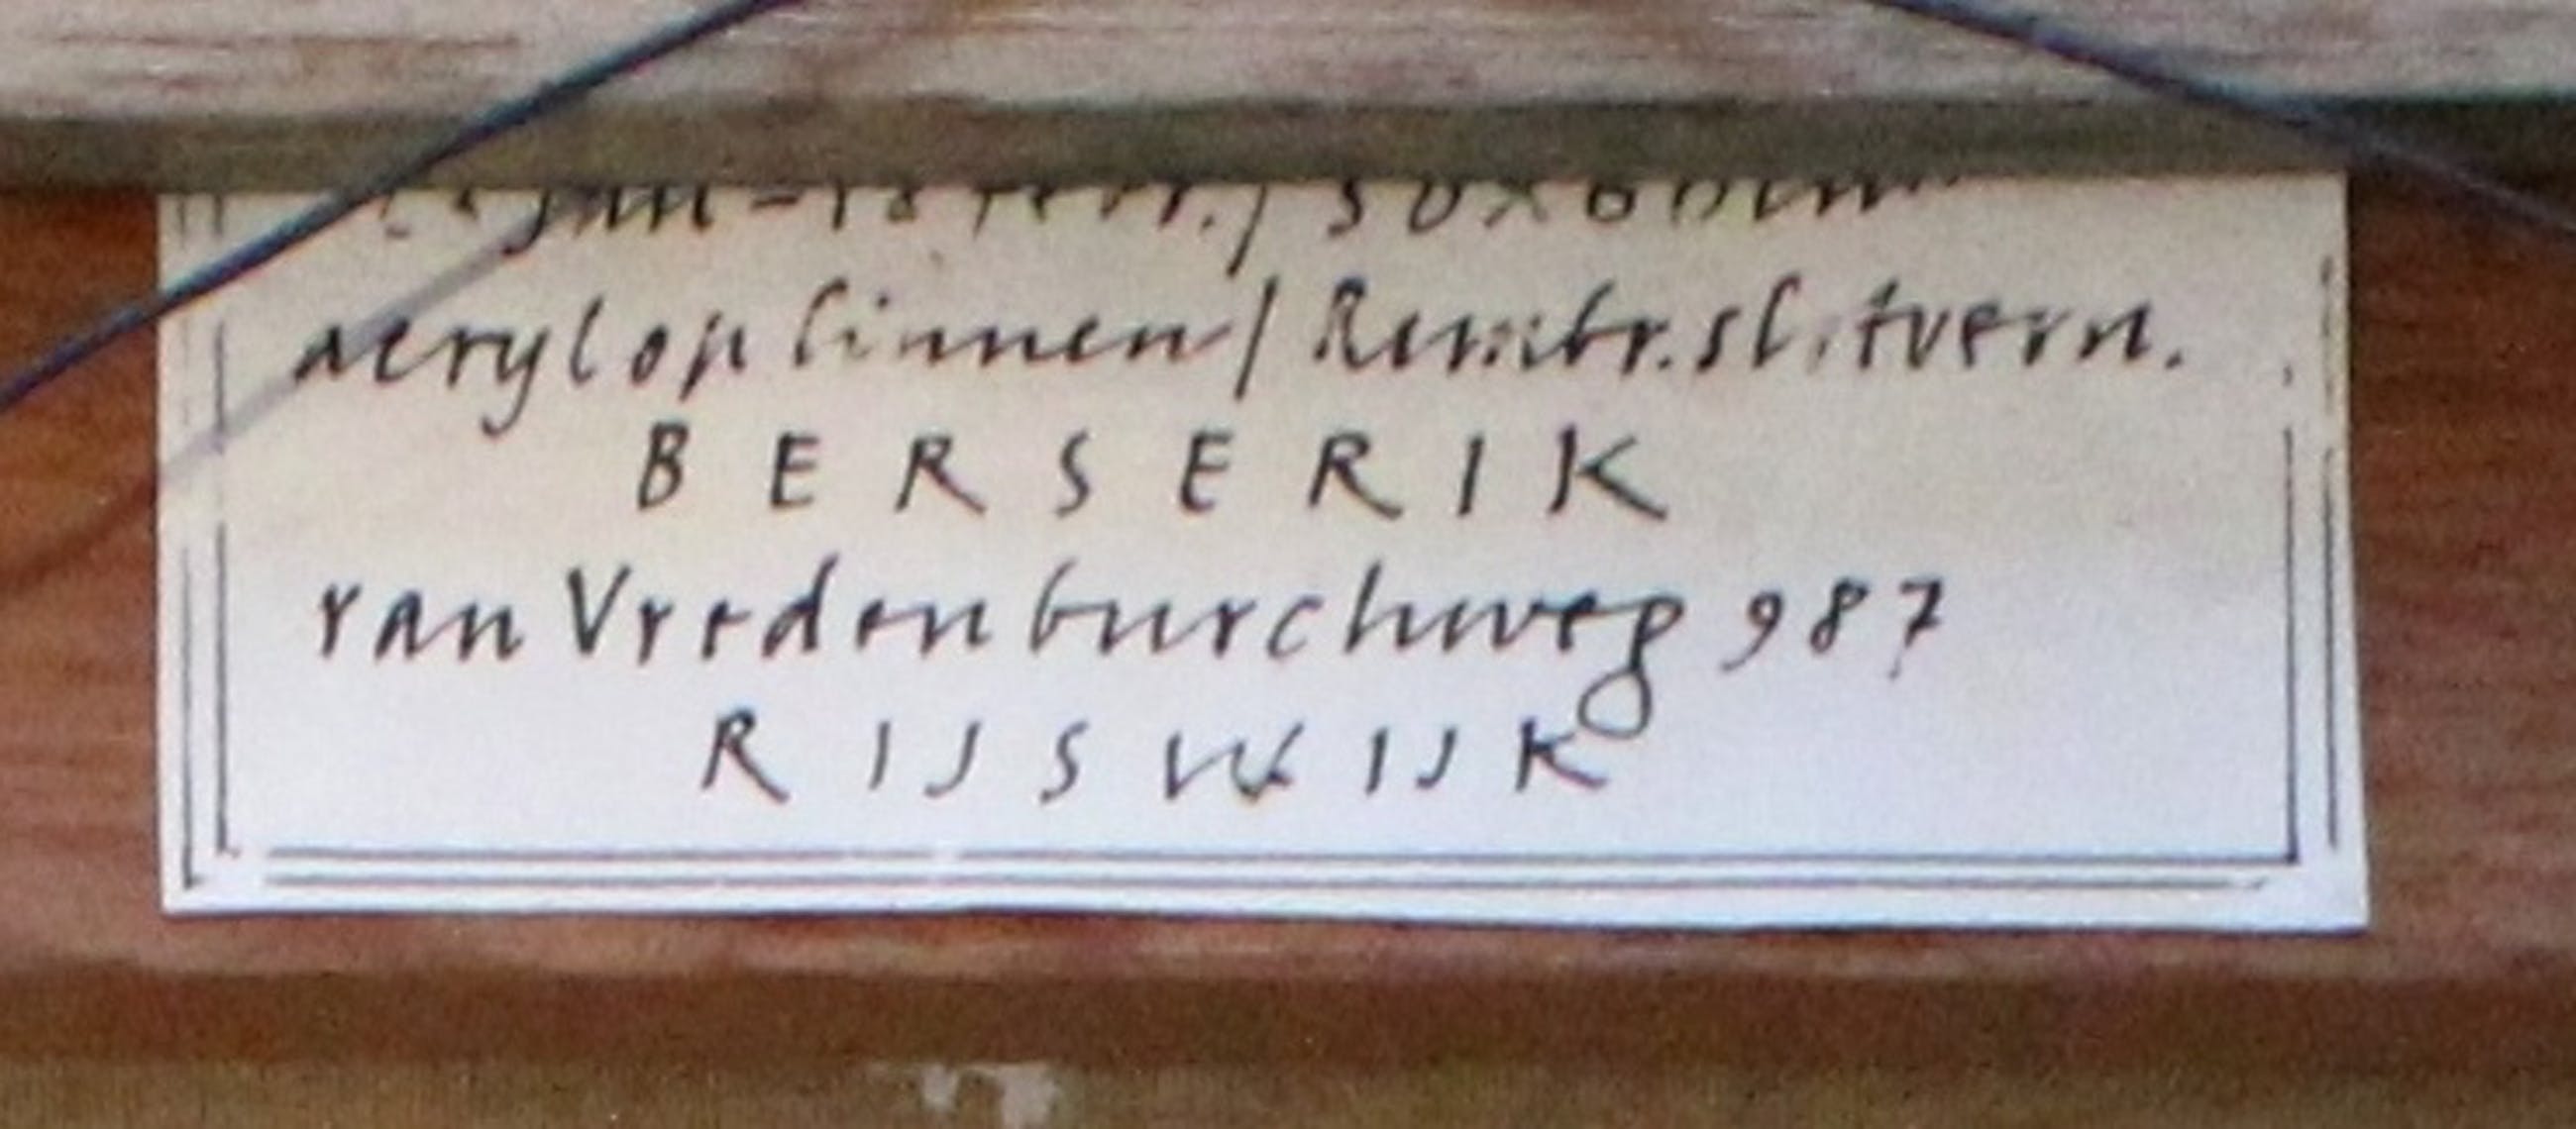 jan - 18 febr. / 50 x 60 cm
acryl op linnen / Rembr. slotvern.
BERSERIK
van Vredenburchweg 987
RIJSWIJK